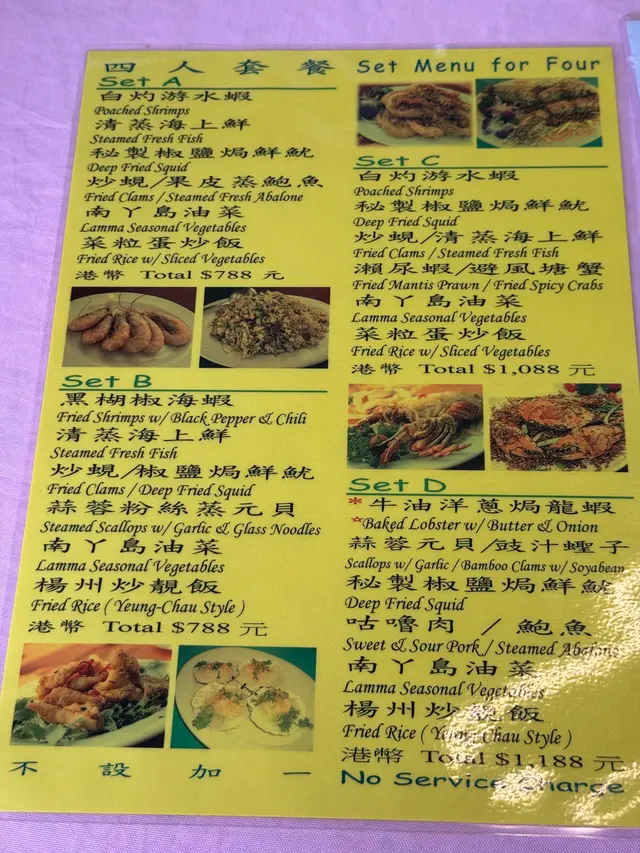 四人套餐 Set Menu for Four
Set A
白灼游水蝦
Poached Shrimps
清蒸海上鮮
Steamed Fresh Fish
秘製椒鹽焗鮮魷
Deep Fried Squid
炒蜆/果皮蒸鮑魚
Fried Clams / Steamed Fresh Abalone
南丫島油菜
Lamma Seasonal Vegetables
菜粒蛋炒飯
Fried Rice w/ Sliced Vegetables
港幣 Total $788 元
Set B
黑椒海蝦
Fried Shrimps w/ Black Pepper & Chili
清蒸海上鮮
Steamed Fresh Fish
炒蜆/椒鹽焗鮮魷
Fried Clams / Deep Fried Squid
蒜蓉粉絲蒸元貝
Steamed Scallops w/ Garlic & Glass Noodles
南丫島油菜
Lamma Seasonal Vegetables
楊州炒靚飯
Fried Rice ( Yeung-Chau Style )
港幣 Total $788 元
不設加一
Set C
白灼游水蝦
Poached Shrimps
秘製椒鹽焗鮮魷
Deep Fried Squid
炒蜆/清蒸海上鮮
Fried Clams / Steamed Fresh Fish
瀨尿蝦/避風塘蟹
Fried Mantis Prawn / Fried Spicy Crabs
南丫島油菜
Lamma Seasonal Vegetables
菜粒蛋炒飯
Fried Rice w/ Sliced Vegetables
港幣 Total $1,088 元
Set D
*牛油洋蔥焗龍蝦
*Baked Lobster w/ Butter & Onion
蒜蓉元貝/豉汁蟶子
Scallops w/ Garlic / Bamboo Clams w/ Soyabean
秘製椒鹽焗鮮魷
Deep Fried Squid
咕嚕肉 / 鮑魚
Sweet & Sour Pork / Steamed Abalone
南丫島油菜
Lamma Seasonal Vegetables
楊州炒靚飯
Fried Rice ( Yeung-Chau Style )
港幣 Total $1,188 元
No Service Charge